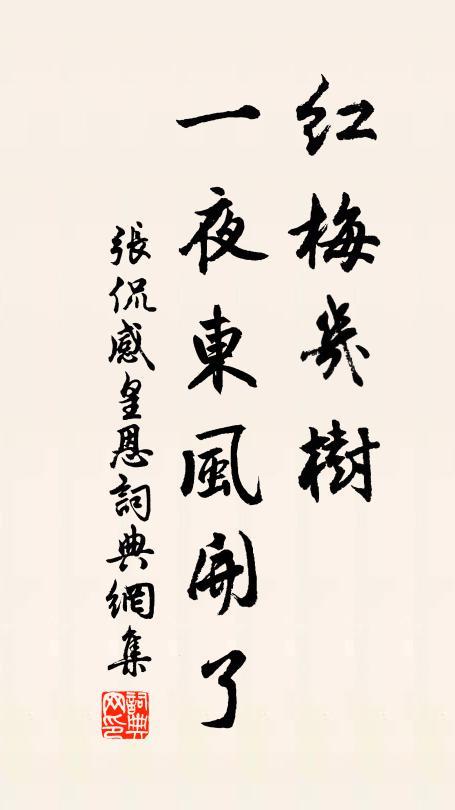 紅梅幾樹
一夜東風開了
張侃感皇恩詞典網集
詞典网印